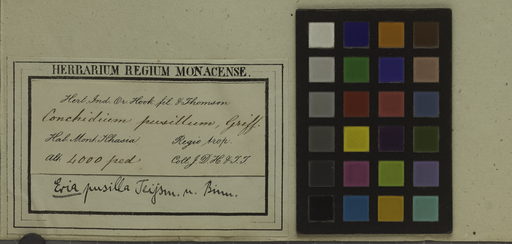 HERBARIUM REGIUM MONACENSE.
Herb. Ind. Or. Hook. fil. & Thomson
Conchidium pusillum, Griff.
Hab. Mont. Khasia Regio trop.
Alt. 4000 ped Coll. J. D. H. & T. T.
Eria pusilla Teijsm. u. Binn.